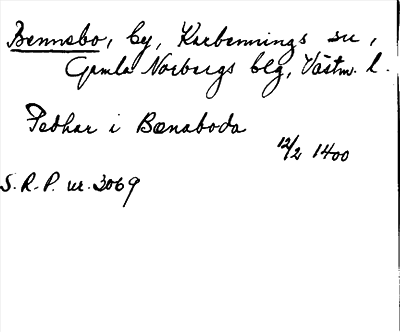 Bennsbo, by, Karbennings sn,
Gamla Norbergs blg, Västm. l.
Pedhar i Bænaboda
12/2 1400
S.R.P. nr. 3069